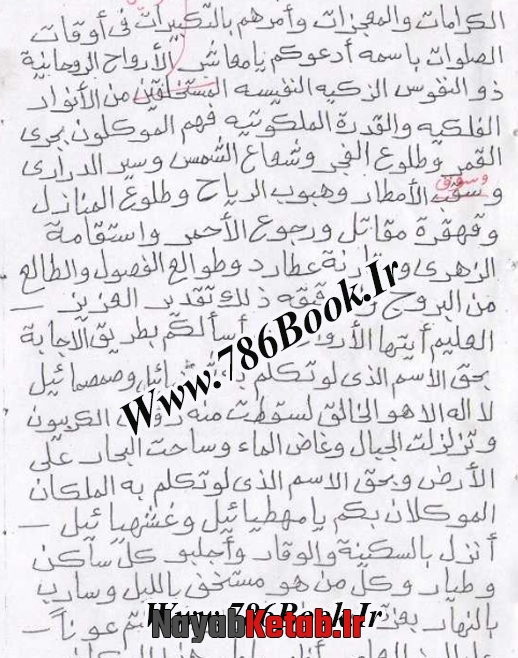 الكرامات والمعجزات وأمرهم بالتكبيرات فى أوقات
الصلوات باسمه أدعوكم يامعاشر الأرواح الروحانية
ذو النفوس الزكيه النفيسه المستخلقين من الأنوار
الفلكيه والقدرة الملكوتيه فهم الموكلون بجرى
القمر وطلوع الفجر وشعاع الشمس وسير الدرارى
وسوق
وسقب الأمطار وهبوب الرياح وطلوع المنازل
وقهقرة مقاتل ورجوع الأحمر واستقامة
الزهرى عطارد وطوالع الفصول والطالع
من البروج ذلك تقدير العزيز –
العليم أيتها أسألكم بطريق الاجابة
بحق الاسم الذى لو تكلم وصمصمائيل
لا اله الا هو الخالق لسقطت منه الكربيون
وتزلزلت الجبال وغاض الماء وساحت البحار على
الأرض وبحق الاسم الذى لو تكلم به الملكان
الموكلان بكم يا مهطيائيل وغشهيائيل –
أنزل بالسكينة والوقار وأجلبو كل ساكن
وطيار وكل من هو مستخفى بالليل وسارب
بالنهار عوناً –
Www.786Book.Ir
Www.786Book.Ir
NayabKetab.ir